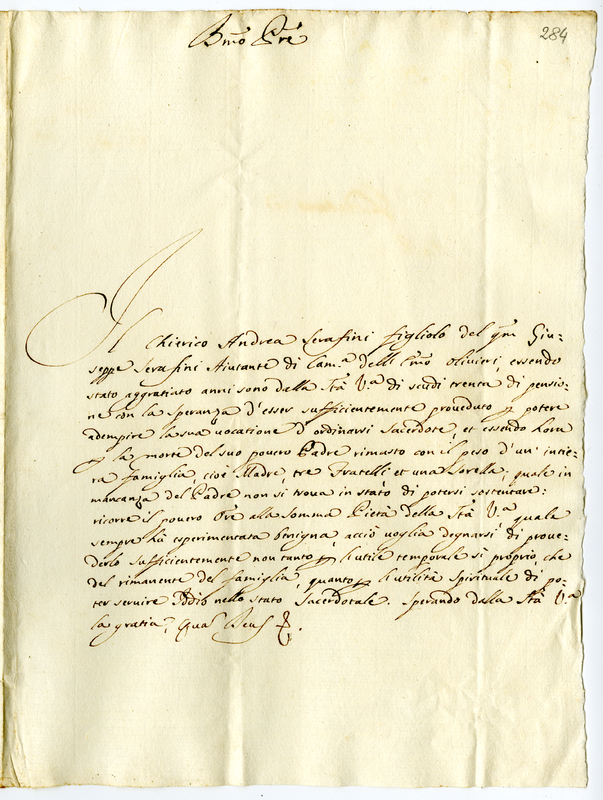 Bmo Pre
284
Il Chierico Andrea Serafini figliolo del qm Giu=
seppe Serafini Aiutante di Cam.a dell Emo Olivieri, essendo
stato aggratiato anni sono dalla Stà V.a di scudi trenta di pensio=
ne con la speranza d'esser sufficientemente proveduto p potere
adempire la sua vocatione d'ordinarsi Sacerdote, et essendo hora
p la morte del suo povero Padre rimasto con il peso d'un' intie=
ra famiglia, cioè Madre, tre Fratelli et una Sorella; quale in
mancanza del Padre non si trova in stato di potersi sostentare:
ricorre il povero Ore alla somma Pietà della Stà V.a quale
sempre hà esperimentata benigna, acciò voglia degnarsi di prove=
derlo sufficientemente non tanto p l'utile temporale sì proprio, che
del rimanente del famiglia, quanto p l'utilità spirituale di po=
ter servire Iddio nello stato Sacerdotale. Sperando dalla Stà V.a
la gratia, Qua Deus